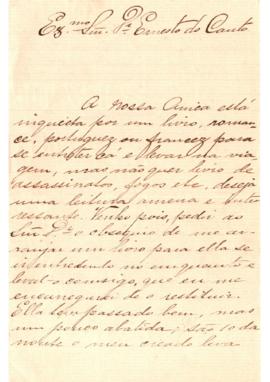 Ex.mo Snr. Dr. Ernesto do Canto
A nossa Amica está
inquieta por um livro, roman-
ce, portuguez ou francez para
se entreter cá e levar na via-
gem, mas não quer livro de
assassinatos, fogos etc, deseja
uma leitura amena e inter
ressante. Venho pois, pedir ao
Snr. Dr. o obsequio de me ar-
ranjar um livro para ella se
ir entretendo no emquanto e
leval-o comsigo, que eu me
encarregarei de o restituir.
Ella tem passado bem, mas
um pouco abatida; são 10 da
noute o meu creado leva